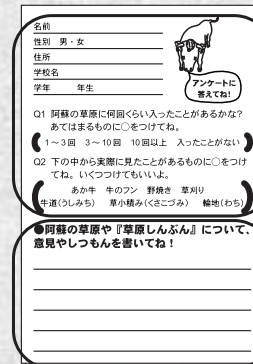 名前
性別 男・女
住所
学校名
学年 年生
アンケートに
答えてね!
Q1 阿蘇の草原に何回くらい入ったことがあるかな?
あてはまるものに○をつけてね。
1～3回 3～10回 10回以上 入ったことがない
Q2 下の中から実際に見たことがあるものに○をつけ
てね。いくつつけてもいいよ。
あか牛 牛のフン 野焼き 草刈り
牛道(うしみち) 草小積み(くさこづみ) 輪地(わち)
●阿蘇の草原や『草原しんぶん』について、
意見やしつもんを書いてね!